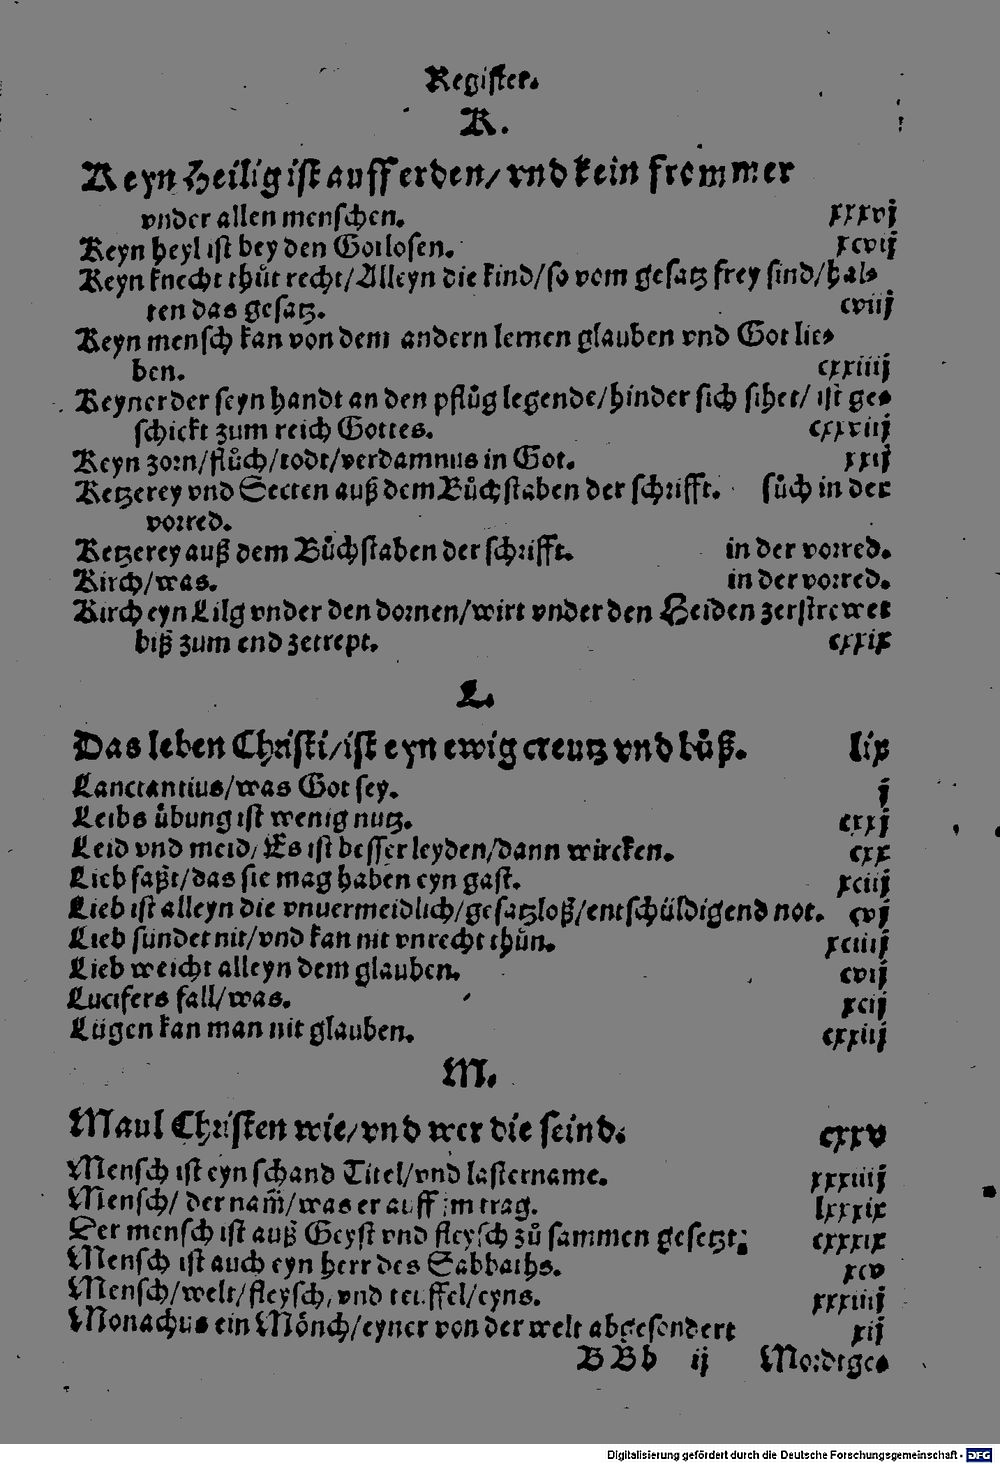 Register.
K.
Keyn Heilig ist auff erden/ vnd kein frommer
vnder allen menschen. xxxvj
Keyn heyl ist bey den Gotlosen. xcvij
Keyn knecht thůt recht/Alleyn die kind/so vom gesatz frey sind/hal-
ten das gesatz. cviij
Keyn mensch kan von dem andern lernen glauben vnd Got lie-
ben. cxxiiij
Keyner der seyn handt an den pflůg legende/hinder sich sihet/ ist ge-
schickt zum reich Gottes. cxxviij
Keyn zorn/flůch/todt/verdamnus in Got. xxij
Ketzerey vnd Secten auß dem Bůchstaben der schrifft. sůch in der
vorred.
Ketzerey auß dem Bůchstaben der schrifft. in der vorred.
Kirch/was. in der vorred.
Kirch eyn Lilg vnder den dornen/wirt vnder den Heiden zerstrewet
biß zum end zetrept. cxxix
L.
Das leben Christi/ist eyn ewig creutz vnd bůß. lix
Lanctantius/was Got sey. j
Leibs übung ist wenig nutz. cxxj
Leid vnd meid/ Es ist besser leyden/dann wircken. cxx
Lieb faßt/das sie mag haben eyn gast. xciij
Lieb ist alleyn die vnuermeidlich/gesatzloß/entschüldigend not. cvj
Lieb sündet nit/vnd kan nit vnrecht thůn. xciiij
Lieb weicht alleyn dem glauben. cvij
Lucifers fall/was. xcij
Lügen kan man nit glauben. cxxiij
M.
Maul Christen wie/vnd wer die seind. cxxv
Mensch ist eyn schand Titel/vnd lastername. xxxiiij
Mensch/ der nam̃/was er auff jm trag. lxxxix
Der mensch ist auß Geyst vnd fleysch zů sammen gesetzt. cxxxix
Mensch ist auch eyn herr des Sabbaths. xcv
Mensch/welt/fleysch, vnd teuffel/eyns. xxxiiij
Monachus ein Mönch/eyner von der welt abgesondert xij
BBb ij Mordtge-
Digitalisierung gefördert durch die Deutsche Forschungsgemeinschaft - DFG